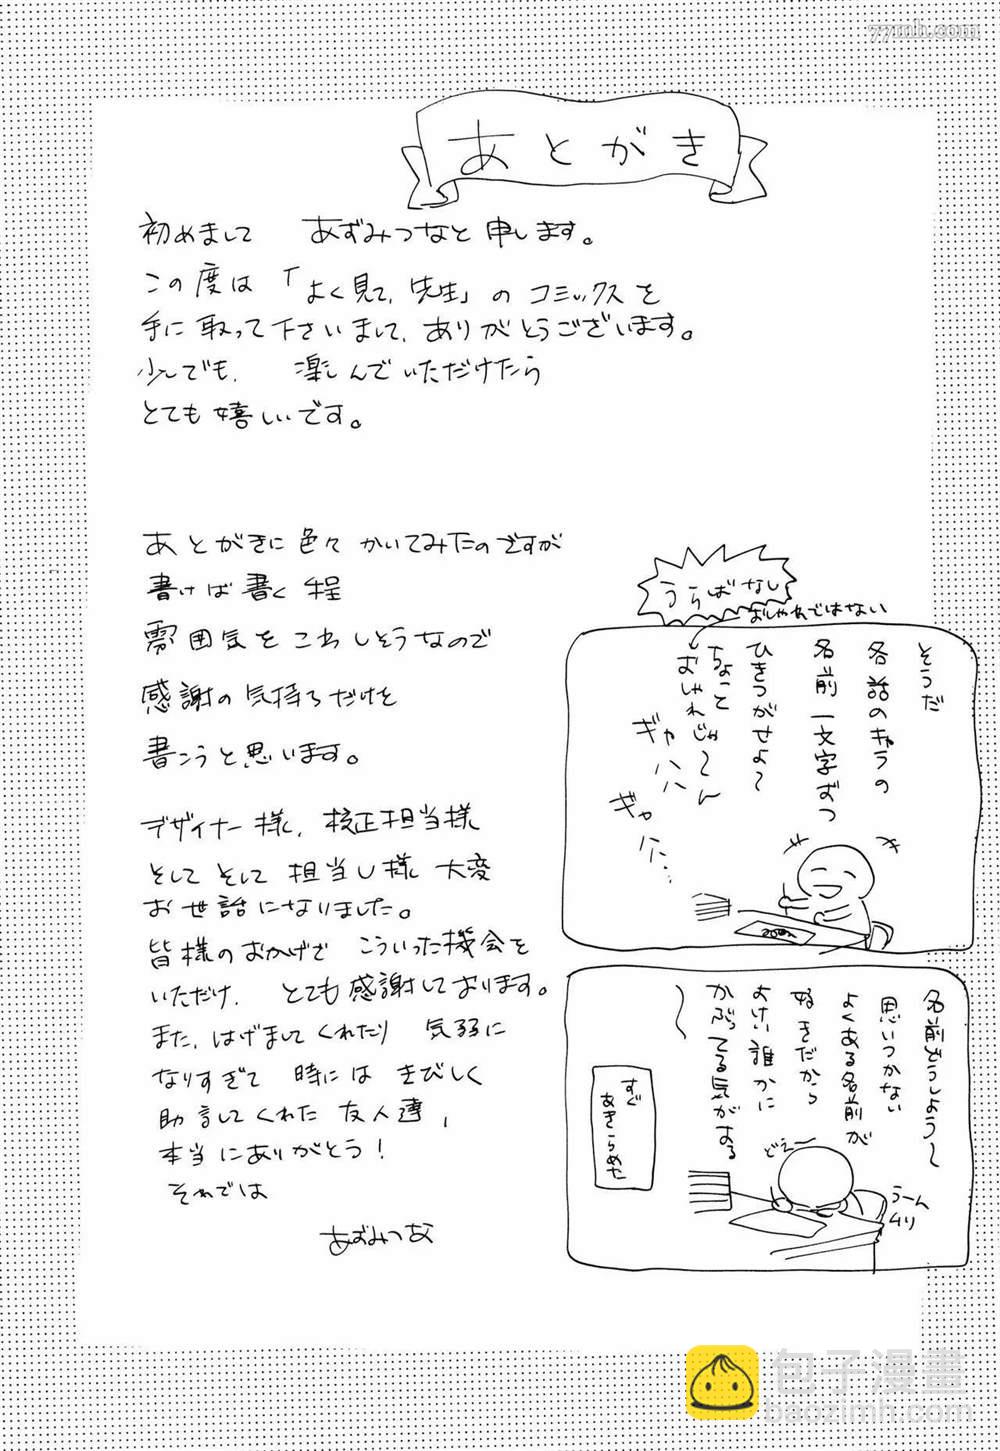 77mh.com
あとがき
初めまして あずみつなと申します。
この度は「よく見て、先生」のコミックスを
手に取って下さいまして、ありがとうございます。
少しでも、 楽しんでいただけたら
とても嬉しいです。
あとがきに色々かいてみたのですが
書けば書く程
雰囲気をこわしそうなので
感謝の気持ちだけを
書こうと思います。
デザイナー様、校正担当様
そしてそして担当U様 大変
お世話になりました。
皆様のおかげで こういった機会を
いただけ、 とても感謝しております。
また、はげましてくれたり 気弱に
なりすぎて 時にはきびしく
助言してくれた友人達、
本当にありがとう!
それでは
あずみつな
うらばなし
おしゃれではない
そうだ
各話のキャラの
名前一文字ずつ
ひきつがせよ〜
ちょっと
おしゃれじゃ〜ん
ギャハハハ
ギャハハ…
名前どうしよう〜
思いつかない
よくある名前が
好きだから
よけい誰かに
かぶってる気がする
〜
どえ〜
うーん
ムリ
すぐ
あきらめた
包子漫畫
baozimh.com